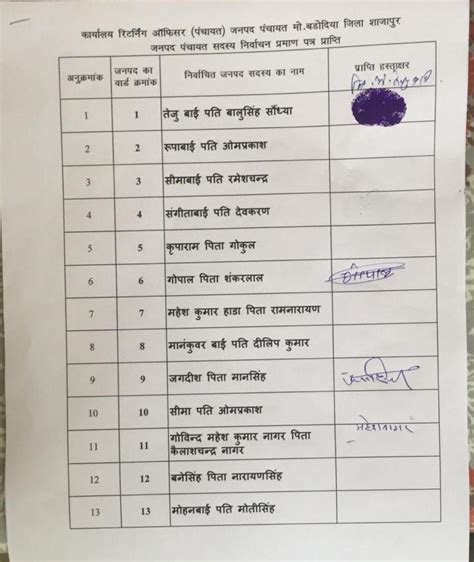 कार्यालय रिटर्निंग ऑफिसर (पंचायत) जनपद पंचायत मो.बडोदिया जिला शाजापुर
जनपद पंचायत सदस्य निर्वाचन प्रमाण पत्र प्राप्ति
अनुक्रमांक जनपद का वार्ड क्रमांक निर्वाचित जनपद सदस्य का नाम प्राप्ति हस्ताक्षर
1 1 तेजु बाई पति बालुसिंह सौंध्या
2 2 रुपाबाई पति ओमप्रकाश
3 3 सीमाबाई पति रमेशचन्द्र
4 4 संगीताबाई पति देवकरण
5 5 कृपाराम पिता गोकुल
6 6 गोपाल पिता शंकरलाल गोपाल
7 7 महेश कुमार हाडा पिता रामनारायण
8 8 मानंकुवर बाई पति दीलिप कुमार
9 9 जगदीश पिता मानसिंह
10 10 सीमा पति ओमप्रकाश
11 11 गोविन्द महेश कुमार नागर पिता
कैलाशचन्द्र नागर
महेश नागर
12 12 बनेसिंह पिता नारायणसिंह
13 13 मोहनबाई पति मोतीसिंह